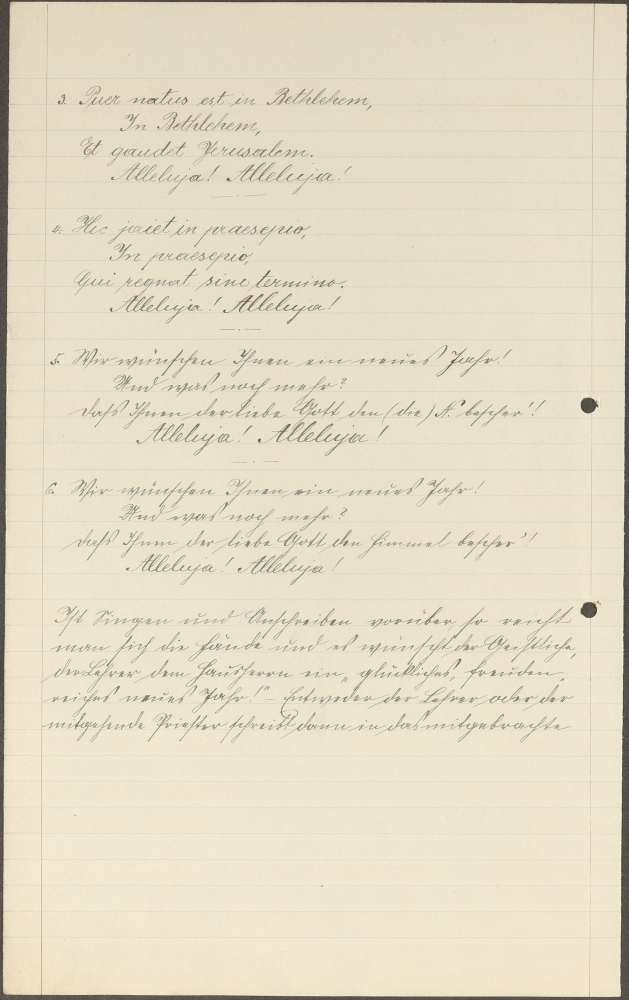 3. Puer natus est in Bethlehem,
In Bethlehem,
Et gaudet Jerusalem.
Alleluja! Alleluja!
4. Hic jaiet in praesepio,
In praesepio,
Qui regnat sine termino.
Alleluja! Alleluja!
5. Wir wünschen Ihnen ein neues Jahr!
Und was noch mehr?
Dafs Ihnen der liebe Gott den (die) hl. bescher'!
Alleluja! Alleluja!
6. Wir wünschen Ihnen ein neues Jahr!
Und was noch mehr?
Dafs Ihnen der liebe Gott den Himmel bescher'!
Alleluja! Alleluja!
Ist Singen und Anschreiben vorüber, so reicht
man sich die Hände und es wünscht der Geistliche,
der Lehrer dem Hausherrn ein „glückliches, freuden-
reiches neues Jahr!" - Entweder der Lehrer oder der
mitgehende Priester schreibt dann in das mitgebrachte